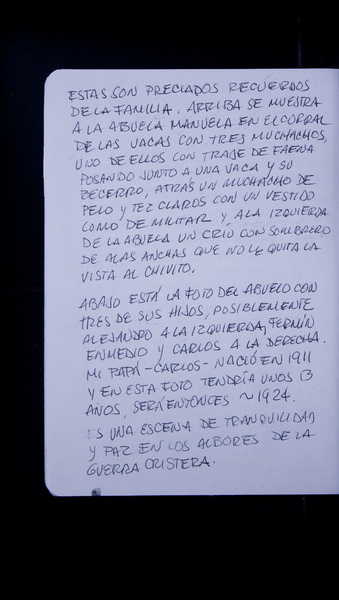 ESTAS SON PRECIADOS RECUERDOS
DE LA FAMILIA. ARRIBA SE MUESTRA
A LA ABUELA MANUELA EN EL CORRAL
DE LAS VACAS CON TRES MUCHACHOS,
UNO DE ELLOS CON TRAJE DE FAENA
POSANDO JUNTO A UNA VACA Y SU
BECERRO, ATRÁS UN MUCHACHO DE
PELO Y TEZ CLAROS CON UN VESTIDO
COMO DE MILITAR Y A LA IZQUIERDA
DE LA ABUELA UN CRÍO CON SOMBRERO
DE ALAS ANCHAS QUE NO LE QUITA LA
VISTA AL CHIVITO.
ABAJO ESTÁ LA FOTO DEL ABUELO CON
TRES DE SUS HIJOS, POSIBLEMENTE
ALEJANDRO A LA IZQUIERDA, FERMÍN
ENMEDIO Y CARLOS A LA DERECHA.
MI PAPÁ -CARLOS- NACIÓ EN 1911
Y EN ESTA FOTO TENDRÍA UNOS 13
AÑOS, SERÁ ENTONCES ~ 1924.
ES UNA ESCENA DE TRANQUILIDAD
Y PAZ EN LOS ALBORES DE LA
GUERRA CRISTERA.